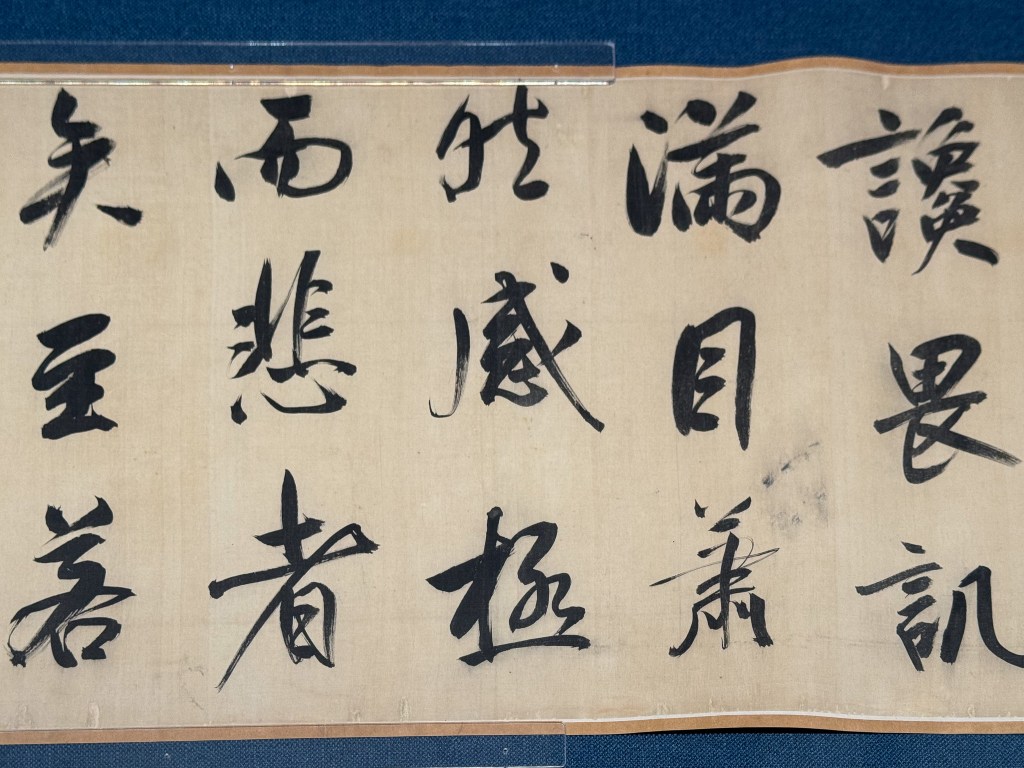 讒畏譏
滿目蕭
然感極
而悲者
矣至若